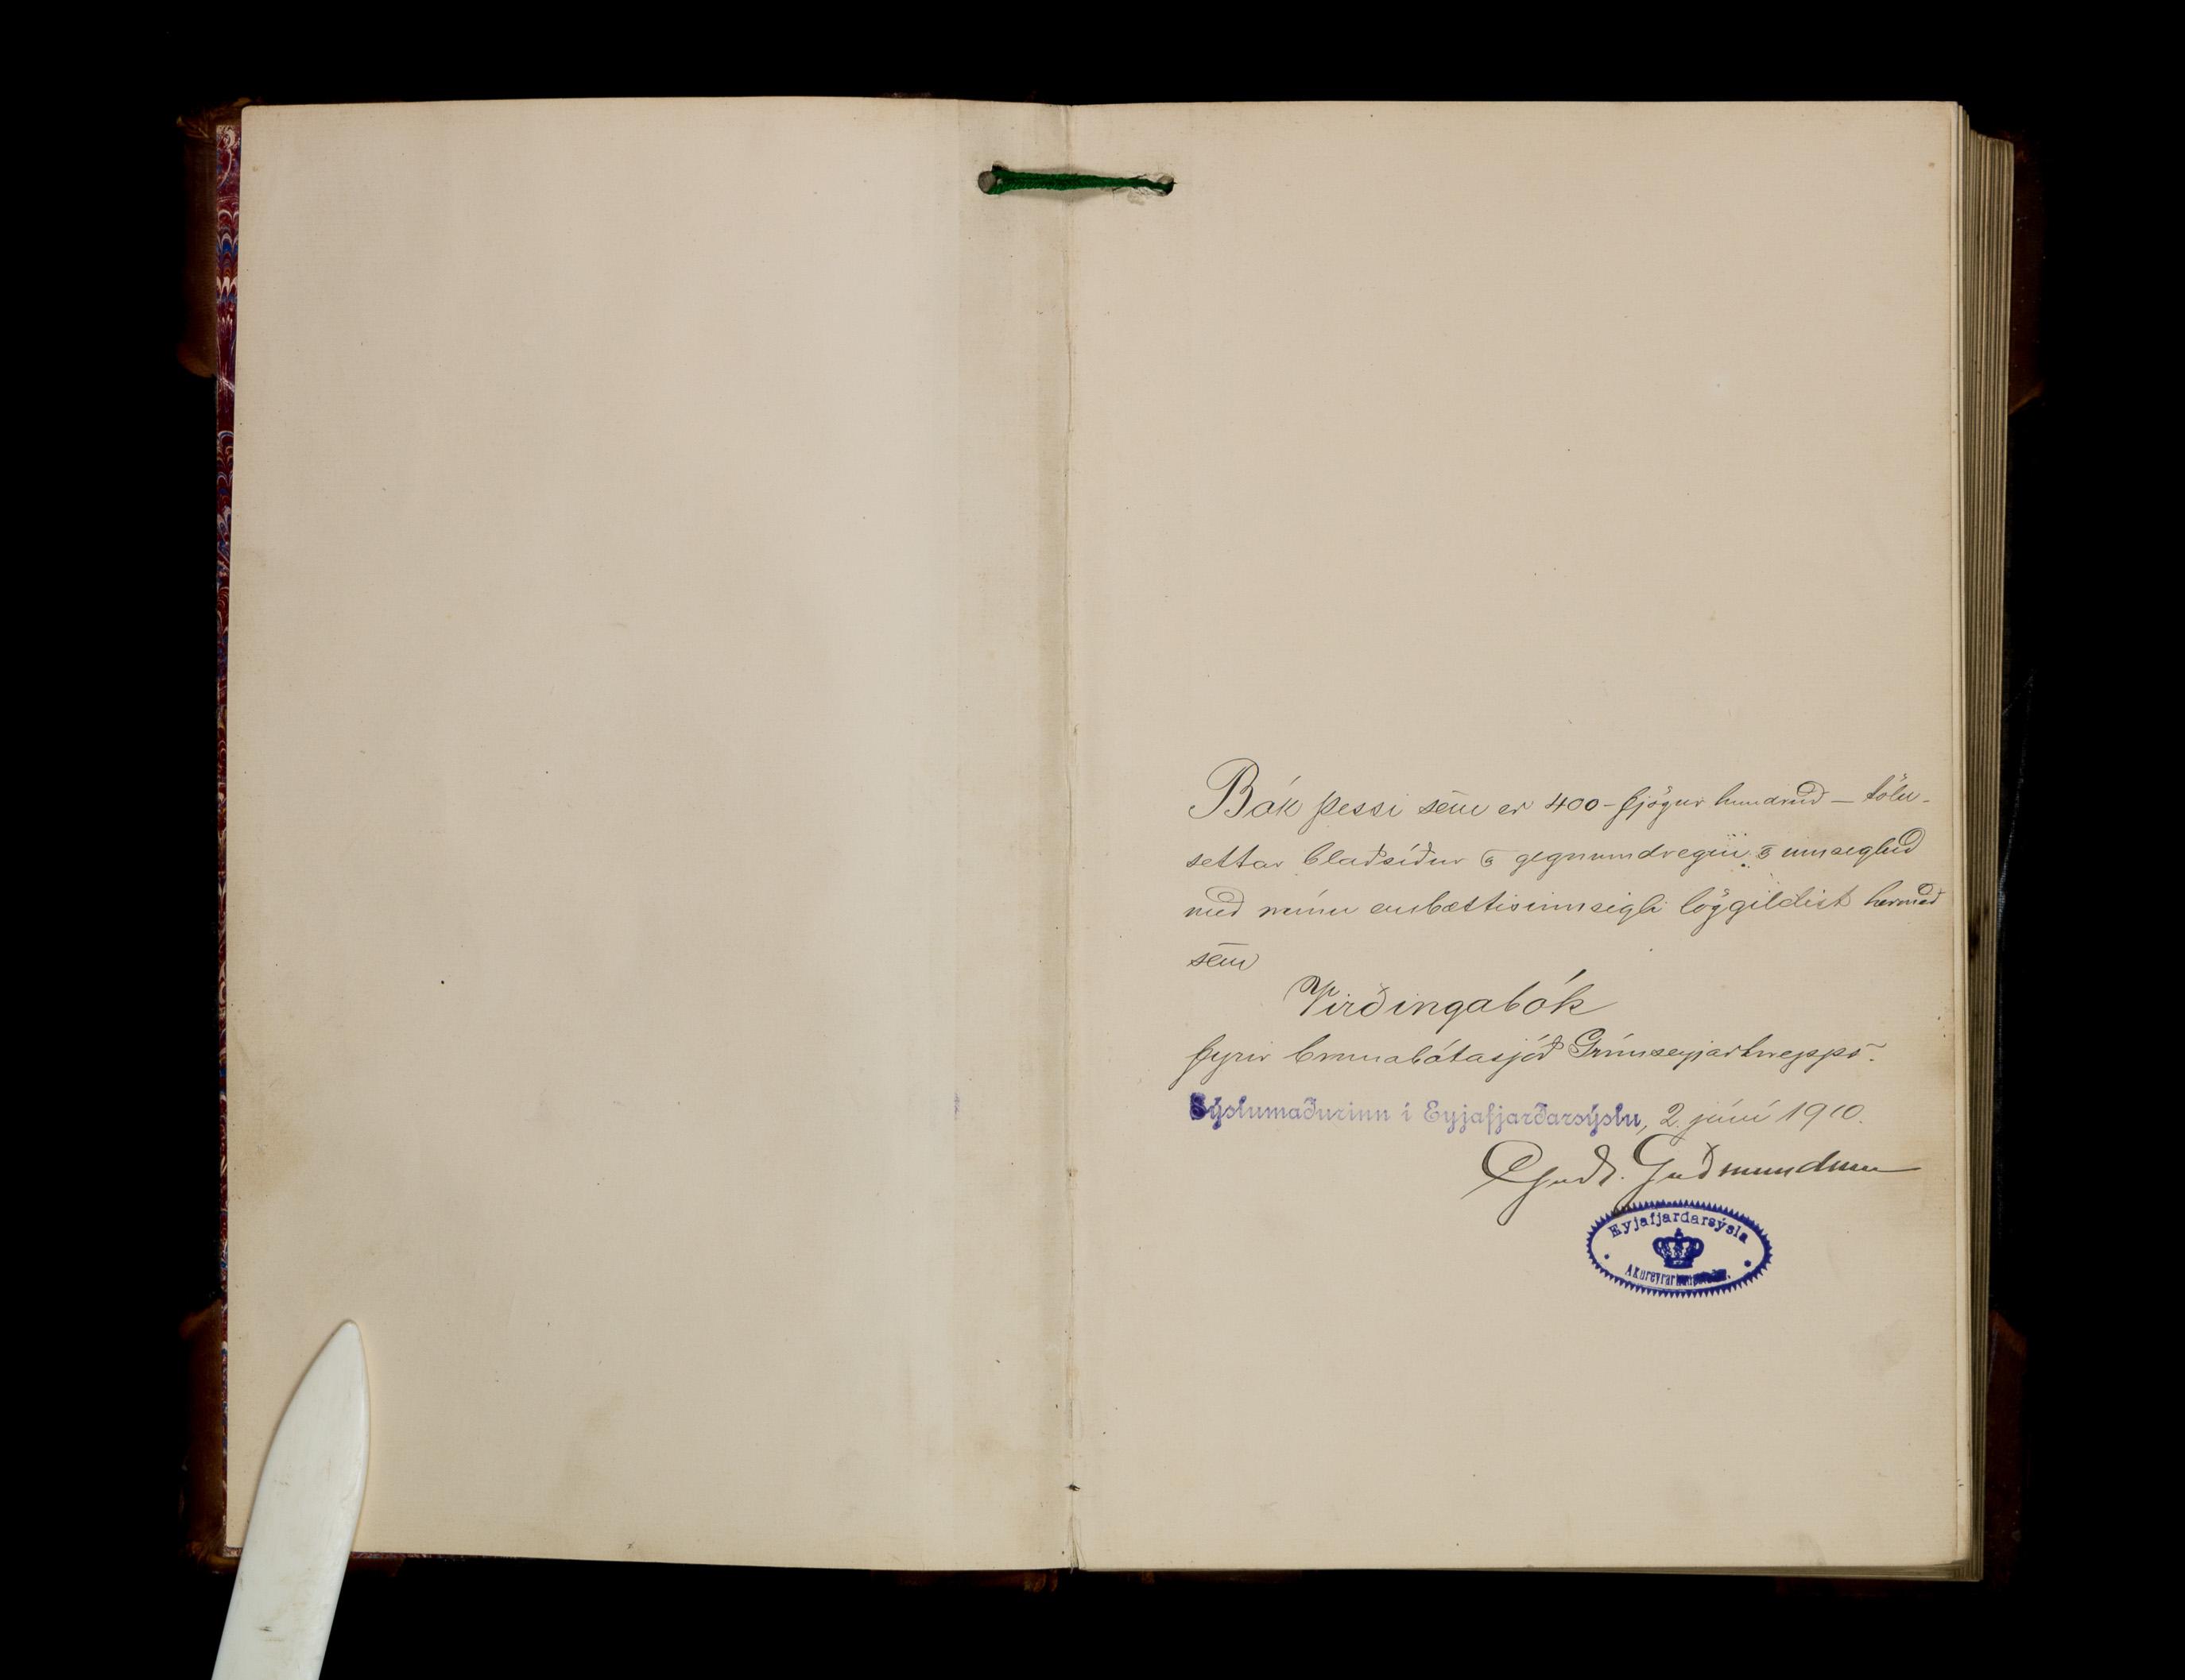 Bók þessi sem er 400 - fjögur hundruð - tölu-
settar blaðsíður og gegnumdregin og innsigluð
með mínu embættisinnsigli löggildist hermeð
sem
Virðingabók
fyrir brunabótasjóð Grímseyjarhrepps.
Sýslumaðurinn í Eyjafjarðarsýslu, 2. júní 1910.
Guðl. Guðmundsson
Eyjafjarðarsýsla